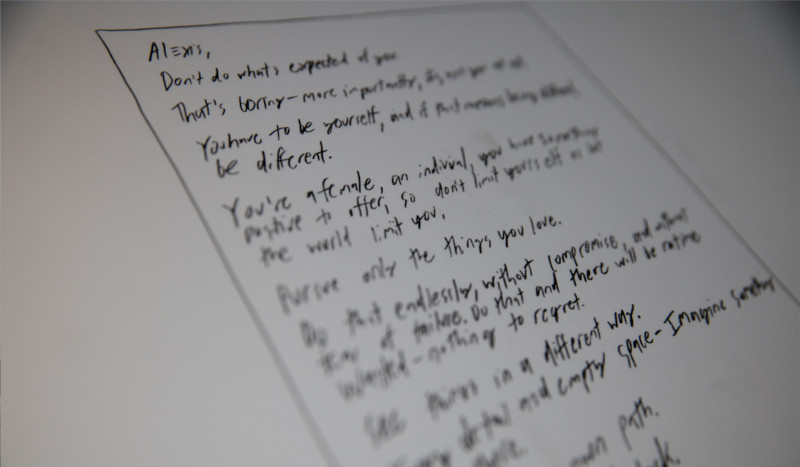 Alexis,
Don't do what's expected of you
That's boring - more importantly, it's not you at all
You have to be yourself, and if that means being different
be different.
You're a female, an indivival, you have something
positive to offer, so don't limit yourself or let
the world limit you.
Pursue only the things you love.
Do that endlessly, without compromise, and without
fear of failure. Do that and there will be no time
wasted - nothing to regret.
See things in a different way.
detail and empty space - Imagine something
own path.